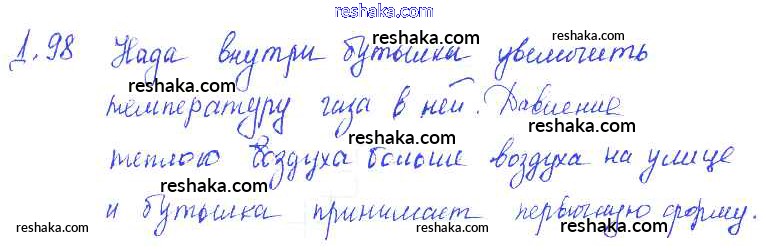 reshaka.com
1.98 Нада внутри бутылки увеличить
reshaka.com
reshaka.com reshaka.com
температуру газа в ней. Давление
reshaka.com
теплого воздуха больше воздуха на улице
reshaka.com reshaka.com
и бутылка принимает первичную форму.
reshaka.com reshaka.com reshaka.com
reshaka.com